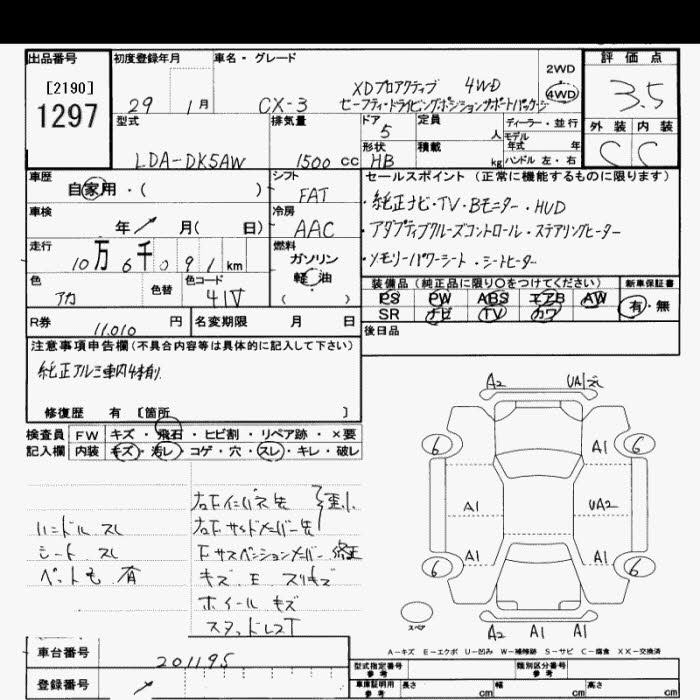 出品番号
[2190]
1297
初度登録年月
29 1月
車名・グレード
CX-3
XDプロアクティブ 4WD
セーフティ・ドライビングポジションサポートパッケージ
2WD
4WD
評価点
3.5
外装 内装
C C
型式
LDA-DK5AW
排気量
1500 cc
ドア
5
定員
人
形状
HB
積載
kg
ディーラー・並行
モデル
年式 年
ハンドル 左・右
車歴
自家用・( )
シフト
FAT
車検
年 月( 日)
冷房
AAC
走行
10万6千091km
燃料
ガソリン
軽油
( )
色
アカ
色替
色コード
41V
R券
11,010 円
名変期限 月 日
セールスポイント(正常に機能するものに限ります)
・純正ナビ・TV・Bモニター・HUD
・アダプティブクルーズコントロール・ステアリングヒーター
・メモリーパワーシート・シートヒーター
装備品(純正品に限り○をつけてください)
新車保証書
PS PW ABS エアB AW
SR ナビ TV カワ
有・無
後日品
注意事項申告欄(不具合内容等は具体的に記入して下さい)
純正アルミ車内4本有り
修復歴 有 [箇所 ]
検査員
記入欄
FW キズ・飛石・ヒビ割・リペア跡・×要
内装 キズ・汚レ・コゲ・穴・スレ・キレ・破レ
ハンドル スレ
シート スレ
ペット毛 有
右下インパネ先
右下サイドメンバー先
歪小
下サスペンションメンバー 修正
キズ E スリキズ
ホイール キズ
スタッドレスT
A2 UA1
6 A1 6
A1 UA2
A1 A1
6 6
スペア
A2 A1 A1
A-キズ E-エクボ U-凹み W-補修跡 S-サビ C-腐食 XX-交換済
車台番号
201195
登録番号
型式指定番号
参考
類別区分番号
参考
車庫証明用
参考
長さ cm
幅 cm
高さ cm